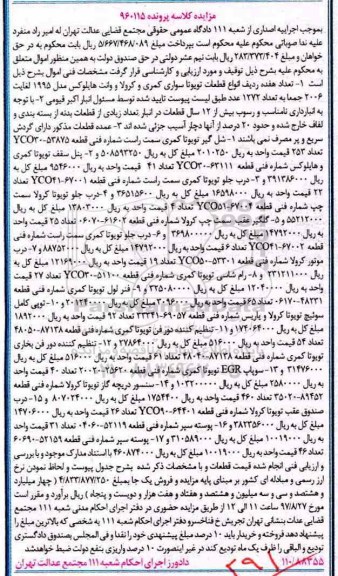 مزایده کلاسه پرونده ۹۶۰۱۱۵
بموجب اجراییه اصداری از شعبه ۱۱۱ دادگاه عمومی حقوقی مجتمع قضایی عدالت تهران له امیر راد منفرد
علیه ندا صوباتی محکوم علیه محکوم است بپرداخت مبلغ ۵/۶۶۷/۴۶۸/۰۸۹ ریال بابت محکوم به در حق
خواهان و مبلغ ۲۸۳/۳۷۳/۴۰۴ ریال بابت نیم عشر دولتی در حق صندوق دولت به همین منظور اموال متعلق
به محکوم علیه بشرح ذیل توقیف و مورد ارزیابی و کارشناسی قرار گرفت مشخصات فنی اموال بشرح ذیل
است ۱- تعداد هفده ردیف انواع قطعات تویوتا سواری کمری و کرولا و وانت هایلوکس مدل ۱۹۹۵ لغایت
۲۰۰۶ جمعا به تعداد ۱۲۷۲ عدد طبق لیست پیوست تایید شده توسط مسئول انبار اکبر قیومی ۲- با توجه
به انبارداری نامناسب و رسوب بیش از ۱۲ سال قطعات در انبار تعداد زیادی از قطعات بدنه از بسته بندی و
لفاف خارج شده و حدود ۲۰ درصد از آنها دچار آسیب جزئی شده اند ۳- عمده قطعات مذکور دارای گردش
سریع و پر مصرف نمی باشند ۱- شل گیر تویوتا کمری سمت راست شماره فنی قطعه ۵۳۸۷۵-YCO۳۰
تعداد ۲۵۳ قیمت واحد به ریال ۲۰۱۰۲۵۰ مبلغ کل به ریال ۵۰۸۵۹۳۲۵۰ و ۲- پنل سقف تویوتا کمری
و هایلوکس شماره فنی قطعه ۶۳۱۱۱-YCO۳۰ تعداد ۴۱ قیمت واحد به ریال ۹۵۴۶۰۰۰ مبلغ کل به
ریال ۳۹۱۳۸۶۰۰۰ و ۳- درب جلو تویوتا کمری سمت راست شماره فنی قطعه ۶۷۰۰۱-YCO۴۱ تعداد
۲۲ قیمت واحد به ریال ۱۶۵۹۸۰۰۰ مبلغ کل به ریال ۳۶۵۱۵۶۰۰۰ و ۴- درب جلو تویوتا کرولا سمت
چپ شماره فنی قطعه ۶۷۰۰۴-YCO۵۱ تعداد ۴ قیمت واحد به ریال ۱۳۸۰۳۰۰۰ مبلغ کل به ریال
۵۵۲۱۲۰۰۰ و ۵- گلگیر عقب سمت چپ کرولا شماره فنی قطعه ۶۱۶۰۲-۶۰۷۰۱ تعداد ۲۵ قیمت واحد
به ریال ۱۴۷۹۲۰۰۰ مبلغ کل به ریال ۳۶۹۸۰۰۰۰۰ و ۶- درب جلو تویوتا کمری سمت راست شماره فنی
قطعه ۶۷۰۰۲-YCO۴۱ تعداد ۶ قیمت واحد به ریال ۱۴۷۹۲۰۰۰ مبلغ کل به ریال ۸۸۷۵۲۰۰۰ و ۷- درب
موتور کرولا شماره فنی قطعه ۵۳۳۰۱-YCO۵۰ تعداد ۱۹ قیمت واحد به ریال ۱۲۱۶۹۰۰۰ مبلغ کل به
ریال ۲۳۱۲۱۱۰۰۰ و ۸- رام شاسی تویوتا کمری شماره فنی قطعه ۵۱۱۰۰-YCO۳۰ تعداد ۲۷ قیمت
واحد به ریال ۱۲۰۴۰۰۰۰ مبلغ کل به ریال ۳۲۵۰۸۰۰۰۰ و ۹- فنر لول تویوتا کمری شماره فنی قطعه
۴۸۲۳۱-۰۶۱۷۰ تعداد ۶۵ قیمت واحد به ریال ۳۰۹۶۰۰۰ مبلغ کل به ریال ۲۰۱۲۴۰۰۰۰ و ۱۰- توپی کامل
سوئیچ تویوتا کرولا و یاریس شماره فنی قطعه ۶۹۰۵۷-۳۳۳۴۱ تعداد ۹۲ قیمت واحد به ریال ۱۸۹۲۰۰۰
مبلغ کل به ریال ۱۷۴۰۶۴۰۰۰ و ۱۱- تنظیم کننده دور فن تویوتا کمری شماره فنی قطعه ۸۷۱۳۸-۴۸۰۵۰
تعداد ۵۴ قیمت واحد به ریال ۵۱۶۰۰۰ مبلغ کل به ریال ۲۷۸۶۴۰۰۰ و ۱۲- تنظیم کننده دور فن بخاری
تویوتا کمری شماره فنی قطعه ۸۷۱۳۸-۴۸۰۴۰ تعداد ۶۱ قیمت واحد به ریال ۵۱۶۰۰۰ مبلغ کل به ریال
۳۱۴۷۶۰۰۰ و ۱۳- سوپاپ EGR تویوتا کمری شماره فنی قطعه ۲۵۶۲۰-۲۰۰۲۰ تعداد ۴۰ قیمت واحد
به ریال ۲۵۸۰۰۰۰ مبلغ کل به ریال ۱۰۳۲۰۰۰۰۰ و ۱۴- سنسور دریچه گاز تویوتا کرولا شماره فنی قطعه
۸۹۴۵۲-۳۵۰۲۰ تعداد ۴۶۰ قیمت واحد به ریال ۱۷۵۴۴۰۰ مبلغ کل به ریال ۸۰۷۰۲۴۰۰۰ و ۱۵- درب
صندوق عقب تویوتا کرولا شماره فنی قطعه ۶۴۴۰۱-YCO۹۰ تعداد ۲۶ قیمت واحد به ریال ۱۴۷۰۶۰۰۰
مبلغ کل به ریال ۳۸۲۳۵۶۰۰۰ و ۱۶- پوسته سپر شماره فنی قطعه ۵۲۱۱۹-۰۶۰۴۰ تعداد ۳۱ قیمت واحد
به ریال ۱۰۰۱۹۰۰۰ مبلغ کل به ریال ۳۱۰۵۸۹۰۰۰ و ۱۷- پوسته سپر شماره فنی قطعه ۵۲۱۵۹-۶۰۶۹۰
تعداد ۴۶ قیمت واحد به ریال ۱۰۰۱۹۰۰۰ مبلغ کل به ریال ۴۶۰۸۷۴۰۰۰ با استناد مدارک موجود و با بررسی
و ارزیابی فنی انجام شده قیمت قطعات و با مشخصات ذکر شده بشرح جدول پیوست و لحاظ نمودن نرخ
ارز رسمی و مبادله ای کشور بر مبنای پایه مزایده و فروش یک جا بمبلغ ۴/۸۳۳/۸۷۷/۲۵۰ ( چهار میلیارد
و هشتصد و سی و سه میلیون و هشتصد و هفتاد و هفت هزار و دویست و پنجاه ) ریال برآورد و مقرر است
مورخ ۹۷/۸/۲۷ ساعت ۱۱ الی ۱۲ از طریق مزایده حضوری در دفتر اجرای احکام مدنی شعبه ۱۱۱ مجتمع
قضایی عدالت بنشانی تهران تجریش خ فناخسرو دفتر اجرای احکام شعبه ۱۱۱ به شخصی که بالاترین مبلغ را
پیشنهاد دهد فروخته و خریدار باید ۱۰ درصد مبلغ پیشنهادی خود را نقدا و فی المجلس بصندوق دادگستری
تودیع و الباقی را ظرف یک ماه تودیع کند در غیر اینصورت ۱۰ درصد واریزی بنفع دولت ضبط خواهدشد
۱۱۰/۸۸۳۵۵ دادورز اجرای احکام شعبه ۱۱۱ مجتمع عدالت تهران